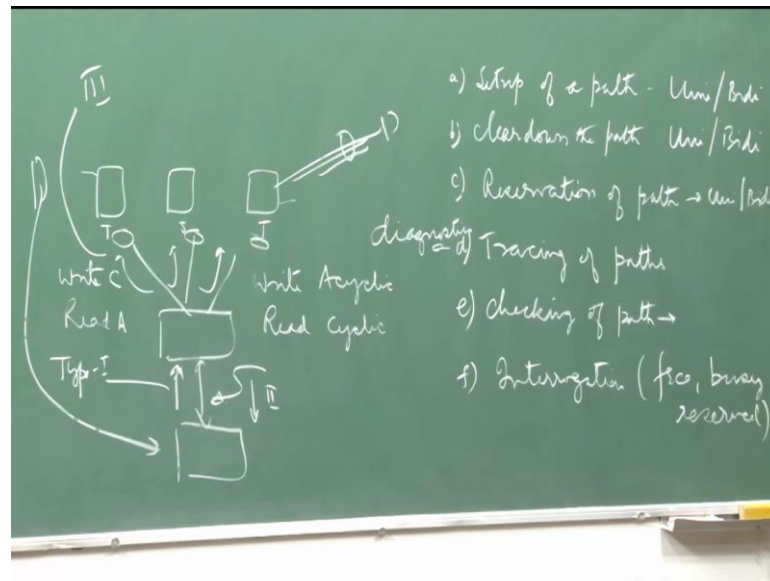 III
D
D
I
I
I
Write C
Read A
Write Acyclic
Read Cyclic
Type-I
II
a) Setup of a path - Uni/Bidi
b) cleardown the path Uni/Bidi
c) Reservation of path → Uni/Bid
diagnostic
d) Tracing of paths
e) checking of path →
f) Interrogation (free, busy
reserved)